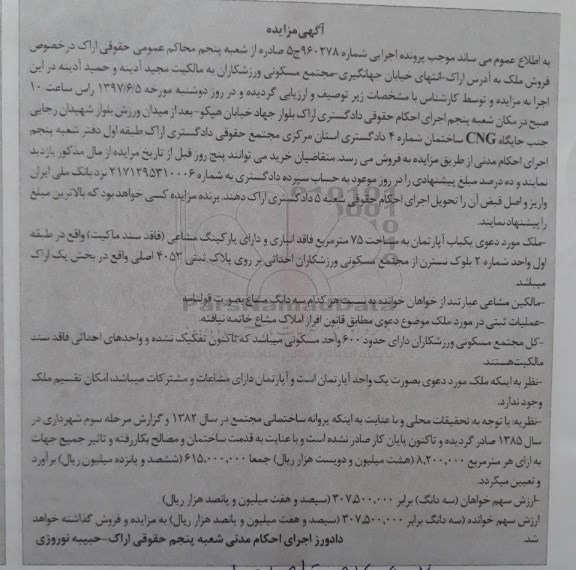 آگهی مزایده
به اطلاع عموم می ساند موجب پرونده اجرایی شماره ۹۶۰۲۷۸ج۵ صادره از شعبه پنجم محاکم عمومی حقوقی اراک در خصوص
فروش ملک به آدرس اراک-انتهای خیابان جهانگیری-مجتمع مسکونی ورزشکاران به مالکیت مجید آدینه و حمید آدینه در این
اجرا به مزایده و توسط کارشناس با مشخصات زیر توصیف و ارزیابی گردیده و در روز دوشنبه مورخه ۱۳۹۷/۶/۵ راس ساعت ۱۰
صبح در مکان شعبه پنجم اجرای احکام حقوقی دادگستری اراک بلوار جهاد خیابان هپکو-بعد از میدان ورزش بلوار شهیدان رجایی
جنب جایگاه CNG ساختمان شماره ۴ دادگستری استان مرکزی مجتمع حقوقی دادگستری اراک طبقه اول دفتر شعبه پنجم
اجرای احکام مدنی از طریق مزایده به فروش می رسد. متقاضیان خرید می توانند پنج روز قبل از تاریخ مزایده از مال مذکور بازدید
نمایند و ده درصد مبلغ پیشنهادی را در روز موعود به حساب سپرده دادگستری به شماره ۲۱۷۱۲۹۵۳۱۰۰۰۶ نزد بانک ملی ایران
واریز و اصل فیش آن را تحویل اجرای احکام حقوقی شعبه ۵ دادگستری اراک دهند. برنده مزایده کسی خواهد بود که بالاترین مبلغ
را پیشنهاد نمایند.
-ملک مورد دعوی یکباب آپارتمان به مساحت ۷۵ مترمربع فاقد انباری و دارای پارکینگ مشاعی (فاقد سند مالکیت) واقع در طبقه
اول واحد شماره ۲ بلوک نسترن از مجتمع مسکونی ورزشکاران احداثی بر روی پلاک ثبتی ۴۰۵۳ اصلی واقع در بخش یک اراک
میباشد.
-مالکین مشاعی عبارتند از خواهان خوانده به نسبت هر کدام سه دانگ مشاع بصورت قولنامه
-عملیات ثبتی در مورد ملک موضوع دعوی مطابق قانون افراز املاک مشاع خاتمه نیافته.
-کل مجتمع مسکونی ورزشکاران دارای حدود ۶۰۰ واحد مسکونی میباشد که تاکنون تفکیک نشده و واحدهای احداثی فاقد سند
مالکیت هستند.
-نظر به اینکه ملک مورد دعوی بصورت یک واحد آپارتمان است و آپارتمان دارای مشاعات و مشترکات میباشد، امکان تقسیم ملک
وجود ندارد.
-نظریه: با توجه به تحقیقات محلی و با عنایت به اینکه پروانه ساختمانی مجتمع در سال ۱۳۸۲ و گزارش مرحله سوم شهرداری در
سال ۱۳۸۵ صادر گردیده و تاکنون پایان کار صادر نشده است و با عنایت به قدمت ساختمان و مصالح بکاررفته و تاثیر جمیع جهات
به ازای هر مترمربع ۸,۲۰۰,۰۰۰ (هشت میلیون و دویست هزار ریال) جمعا ۶۱۵,۰۰۰,۰۰۰ (ششصد و پانزده میلیون ریال) برآورد
و تعیین میگردد.
-ارزش سهم خواهان (سه دانگ) برابر ۳۰۷,۵۰۰,۰۰۰ (سیصد و هفت میلیون و پانصد هزار ریال)
ارزش سهم خوانده (سه دانگ برابر ۳۰۷,۵۰۰,۰۰۰ (سیصد و هفت میلیون و پانصد هزار ریال) به مزایده و فروش گذاشته خواهد
شد. دادورز اجرای احکام مدنی شعبه پنجم حقوقی اراک-حبیبه نوروزی
ParsNamadData